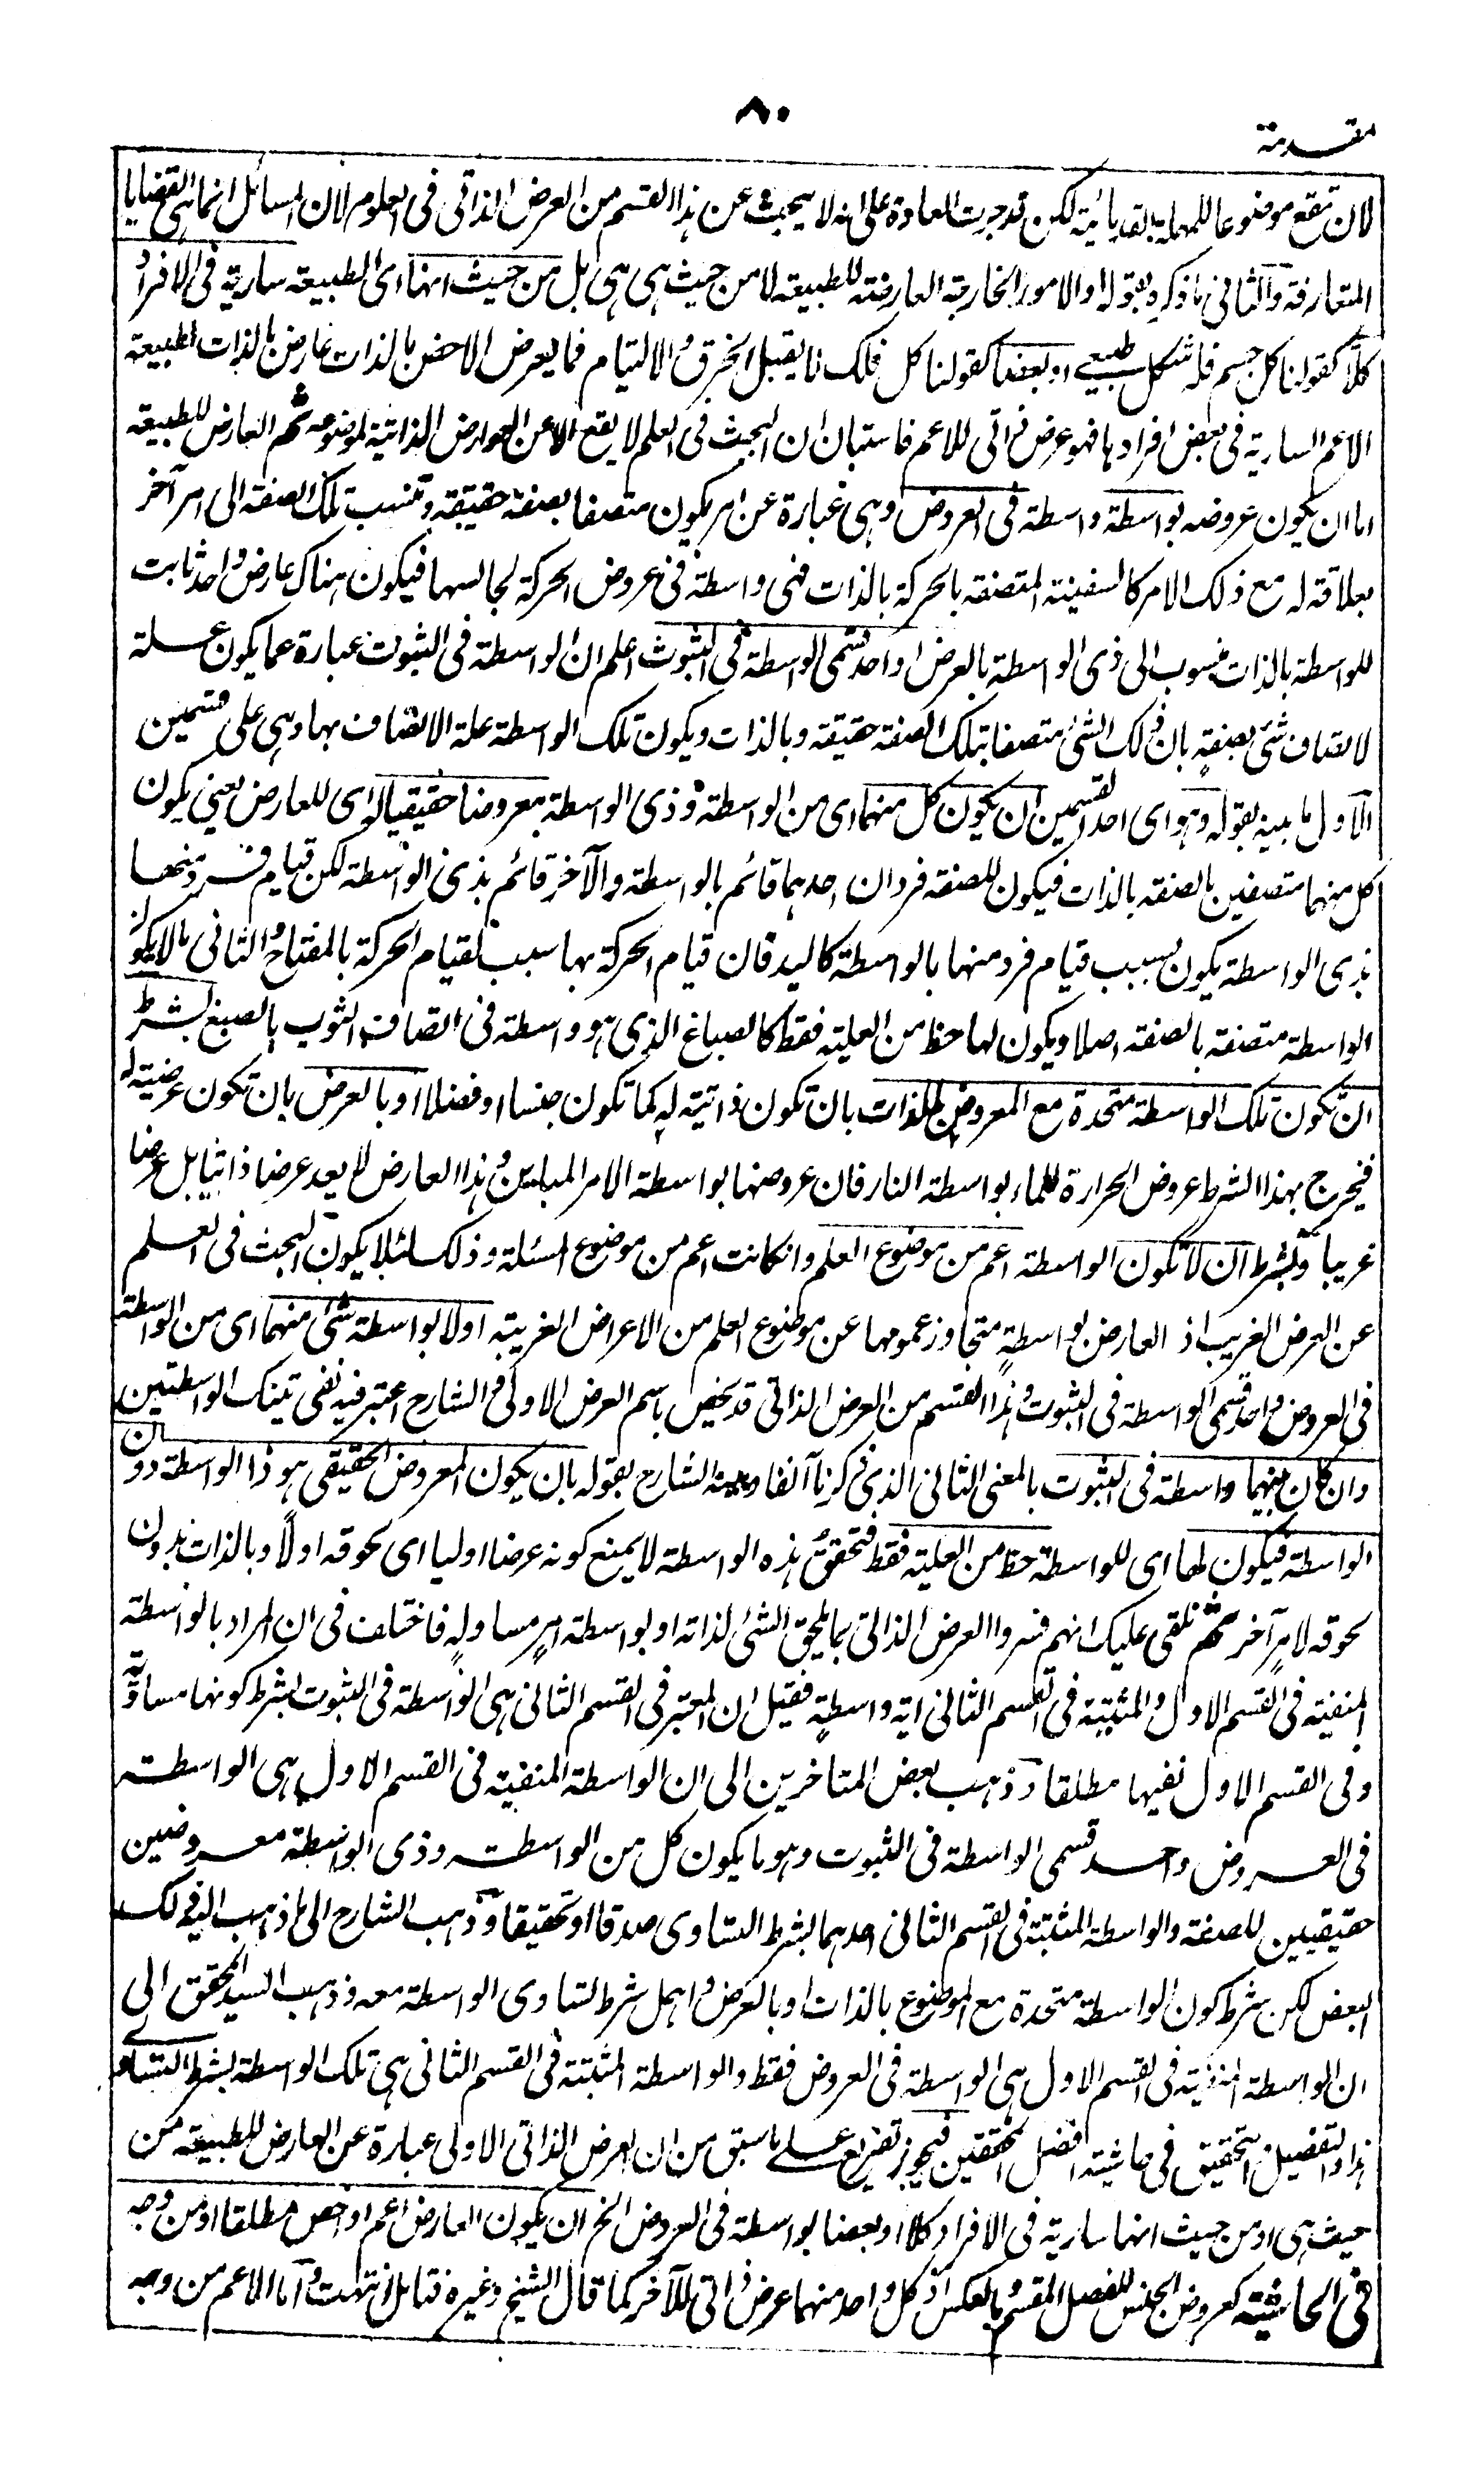 ٨٠
مقدمة
لان تقع موضوعا للمهملة القدمائية لكن قد جرت العادة على انه لا يبحث عن هذا القسم من العرض الذاتى فى العلوم لان المسائل انما هى القضايا
المتعارفة والثانى ما ذكره بقوله او الامور الخارجة العارضة للطبيعة لا من حيث هى هى بل من حيث انها اى الطبيعة سارية فى الافراد
كلّا كقولنا كل جسم فله شكل طبيعى او بعضا كقولنا كل فلك لا يقبل الخرق والالتيام فما يعرض الاخص بالذات عارض بالذات لطبيعة
الاعم السارية فى بعض افرادها فهو عرض ذاتى للاعم فاستبان ان البحث فى العلم لا يقع الا عن العوارض الذاتية لموضوعه ثم العارض للطبيعة
اما ان يكون عروضه بواسطة واسطة فى العروض وهى عبارة عن امر يكون متصفا بصفة حقيقة وتنسب تلك الصفة الى امر آخر
بعلاقة له مع ذلك الامر كالسفينة المتصفة بالحركة بالذات فهى واسطة فى عروض الحركة لجالسها فيكون هناك عارض واحد ثابت
للواسطة بالذات منسوب الى ذى الواسطة بالعرض او احد قسمى الواسطة فى الثبوت اعلم ان الواسطة فى الثبوت عبارة عما يكون علة
لاتصاف شئ بصفةٍ بان ذلك الشئ متصفا بتلك الصفة حقيقة وبالذات ويكون تلك الواسطة علة الاتصاف بها وهى على قسمين
الاول ما بينه بقوله وهو اى احد القسمين ان يكون كل منهما اى من الواسطة وذى الواسطة معروضا حقيقيا له اى للعارض يعنى يكون
كل منهما متصفين بالصفة بالذات فيكون للصفة فردان احدهما قائم بالواسطة والآخر قائم بذى الواسطة لكن قيام فرد منها
بذى الواسطة يكون بسبب قيام فرد منها بالواسطة كاليد فان قيام الحركة بها سبب لقيام الحركة بالمفتاح والثانى ما لا يكون
الواسطة متصفة بالصفة اصلا ويكون لها حظ من العلية فقط كالصباغ الذى هو واسطة فى اتصاف الثوب بالصبغ بشرط
ان تكون تلك الواسطة متحدة مع المعروض بالذات بان تكون ذاتية له كما تكون جنسا او فصلا او بالعرض بان تكون عرضية له
فيخرج بهذا الشرط عروض الحرارة للماء بواسطة النار فان عروضها بواسطة الامر المباين وهذا العارض لا يعد عرضا ذاتيا بل عرضا
غريبا وبشرط ان لا تكون الواسطة اعم من موضوع العلم وان كانت اعم من موضوع المسئلة وذلك لئلا يكون البحث فى العلم
عن العرض الغريب اذ العارض بواسطةٍ متجاوز عمومها عن موضوع العلم من الاعراض الغريبة اولا بواسطة شئ منهما اى من الواسطة
فى العروض واحد قسمى الواسطة فى الثبوت وهذا القسم من العرض الذاتى قد يخص باسم العرض الاولى والشارح اعتبر فيه نفى تينك الواسطتين
وان كان بينهما واسطة فى الثبوت بالمعنى الثانى الذى ذكرنا آنفا وبينه الشارح بقوله بان يكون المعروض الحقيقى هو ذا الواسطة دون
الواسطة فيكون لها اى للواسطة حظ من العلية فقط فتحقق هذه الواسطة لا يمنع كونه عرضا اوليا اى لحوقه اولاً وبالذات بدون
لحوقه لامرٍ آخر ثم نلقى عليك انهم فسروا العرض الذاتى بما يلحق الشئ لذاته او بواسطة امرٍ مساوٍ له فاختلف فى ان المراد بالواسطة
المنفية فى القسم الاول والمثبتة فى القسم الثانى اية واسطةٍ فقيل ان المعتبر فى القسم الثانى هى الواسطة فى الثبوت بشرط كونها مساوية
وفى القسم الاول نفيها مطلقا وذهب بعض المتاخرين الى ان الواسطة المنفية فى القسم الاول هى الواسطة
فى العروض واحد قسمى الواسطة فى الثبوت وهو ما يكون كل من الواسطة وذى الواسطة معروضين
حقيقيين للصفة والواسطة المثبتة فى القسم الثانى احدهما بشرط التساوى صدقا او تحقيقا وذهب الشارح الى ما ذهب اليه ذلك
البعض لكن شرط كون الواسطة متحدة مع الموضوع بالذات او بالعرض واهمل شرط تساوى الواسطة معه وذهب السيد المحقق الى
ان الواسطة المنفية فى القسم الاول هى الواسطة فى العروض فقط والواسطة المثبتة فى القسم الثانى هى تلك الواسطة بشرط التساوى
هذا والتفصيل والتحقيق فى حاشية افضل المحققين فيجوز تفريع على ما سبق من ان العرض الذاتى الاولى عبارة عن العارض للطبيعة من
حيث هى او من حيث انها سارية فى الافراد كلا او بعضا بواسطة فى العروض الخ ان يكون العارض اعم او اخص مطلقا او من وجه
فى الحاشية كعروض الجنس للفصل المقسم وبالعكس اذ كل واحد منهما عرض ذاتى للآخر كما قال الشيخ وغيره فتامل انتهت واما الاعم من وجه